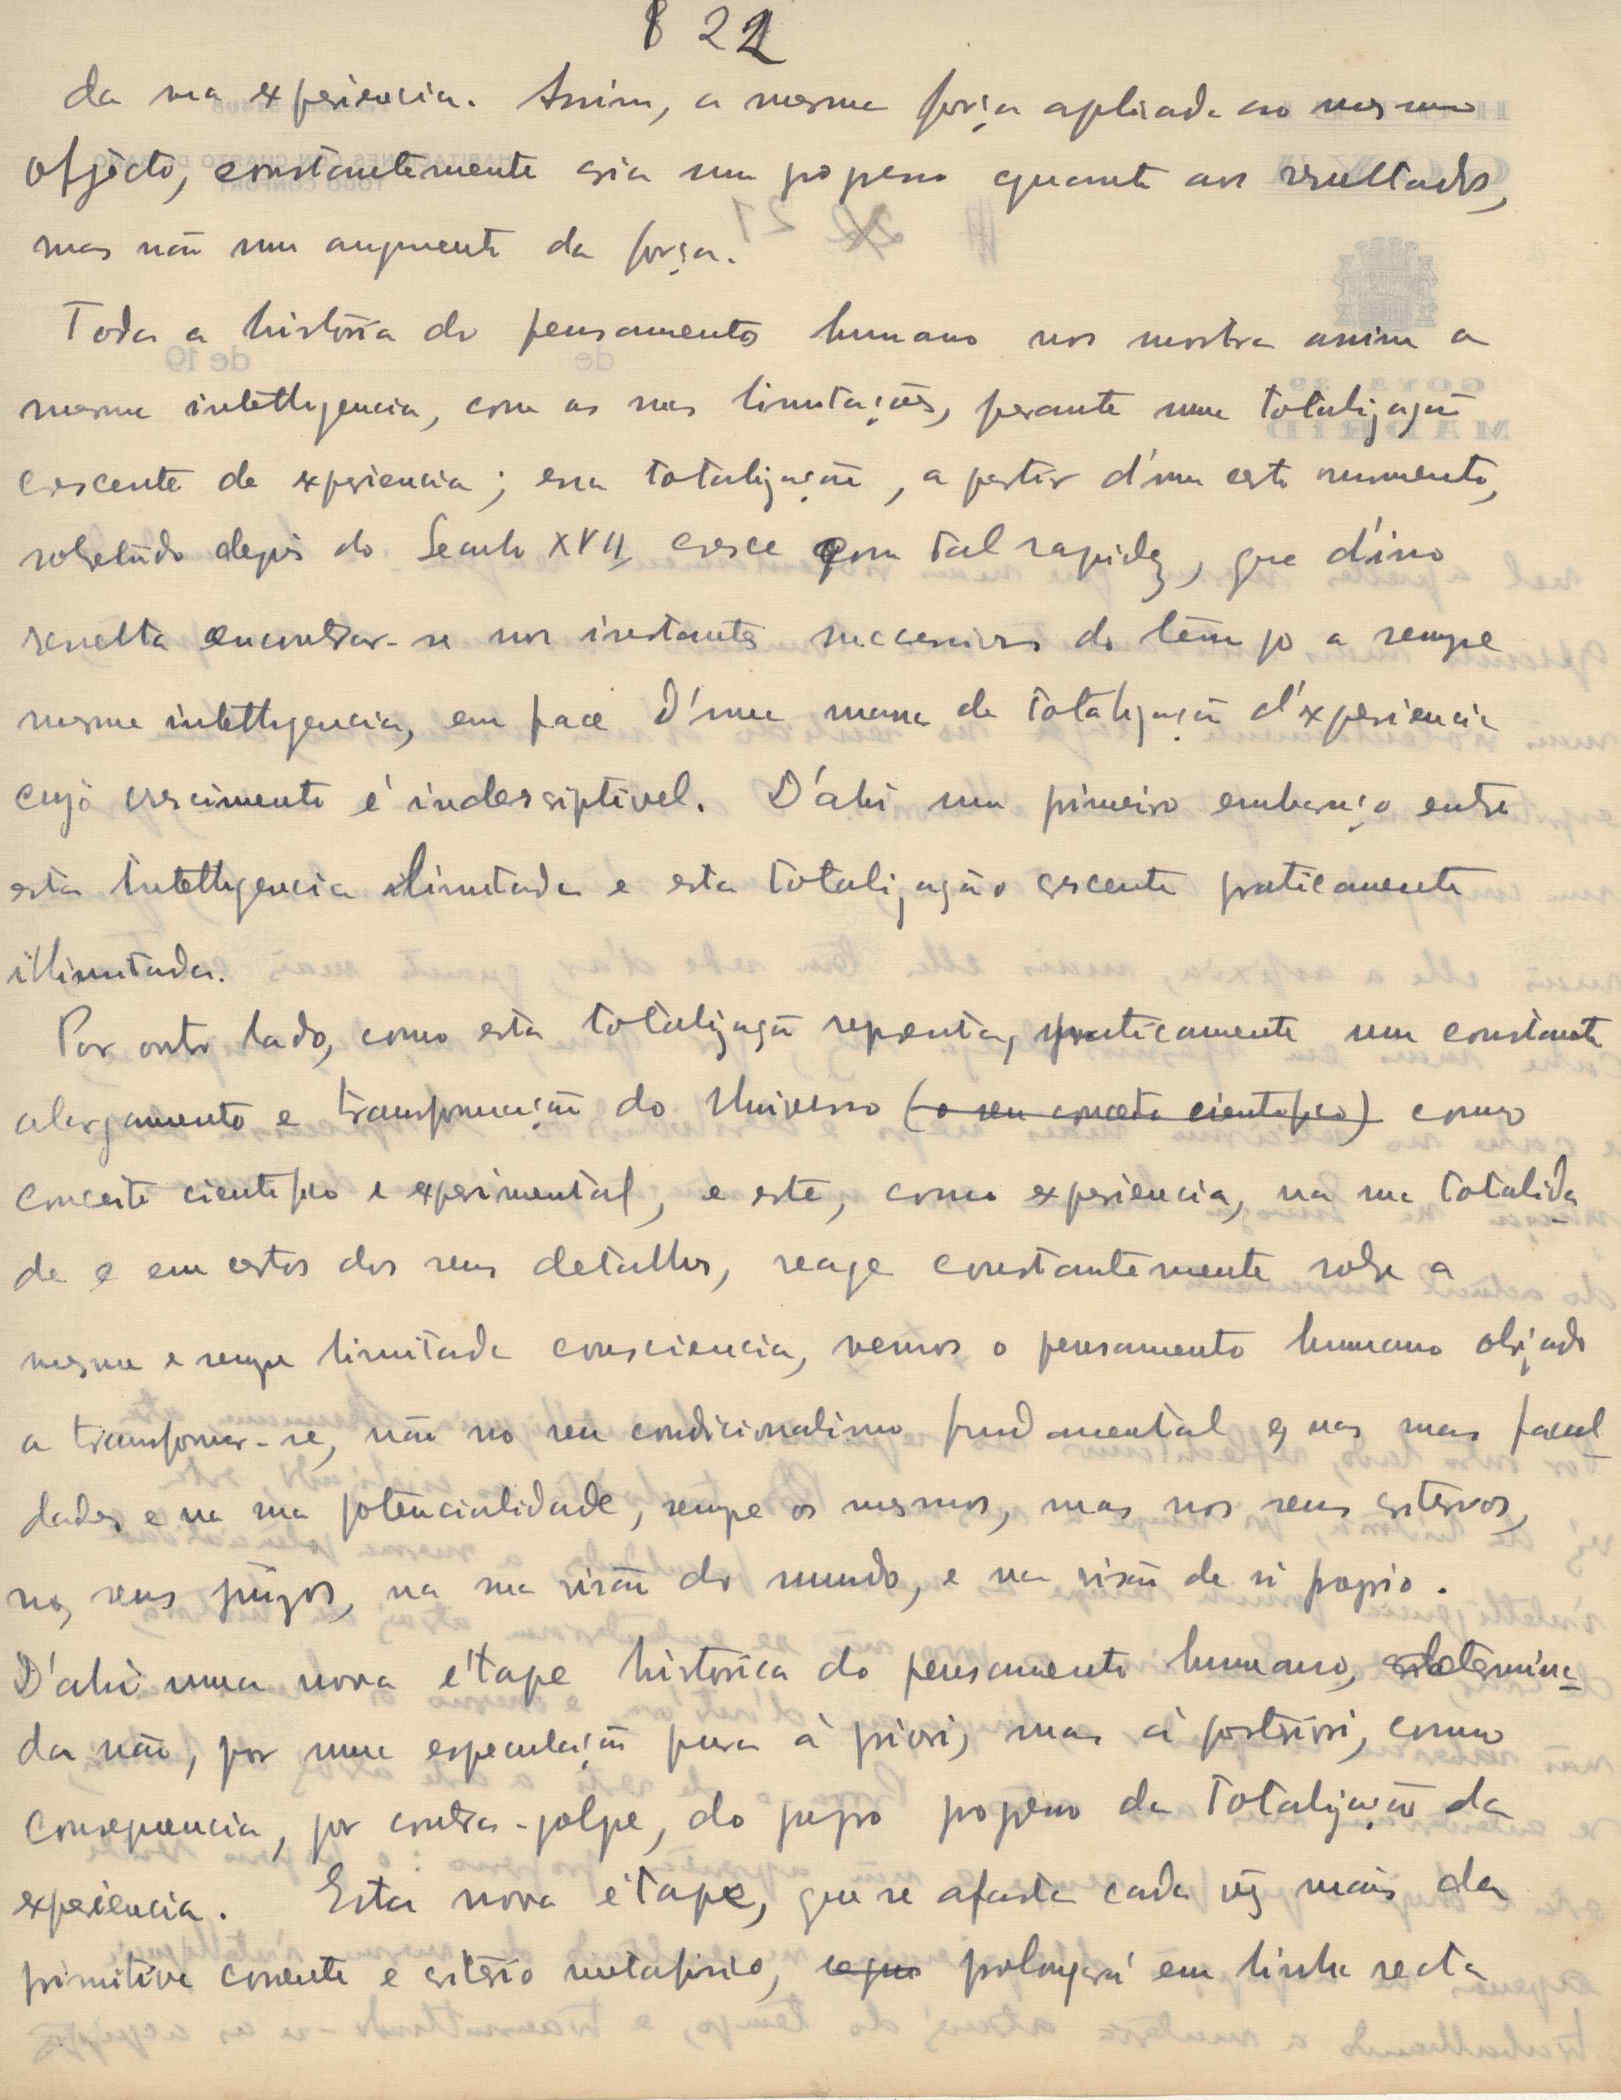 22
da sua experiencia. Assim, a mesma força aplicada ao mesmo
objécto, constantemente cria um progresso quanto aos resultados,
mas não um augmento da força.
Toda a história do pensamento humano nos mostra assim a
mesma intelligencia, com as suas limitações, perante uma totalização
crescente de experiencia; essa totalização, a partir d'um certo momento,
sobretudo depois do Seculo XVII cresce com tal rapidez, que d'isso
resulta encontrar-se nos instantes successivos do tempo a sempre
mesma intelligencia, em face d'uma massa de totalização d'experiencia
cujo crescimento é indescriptivel. D'ahi um primeiro embaraço entre
esta intelligencia limitada e esta totalização crescente praticamente
illimitada.
Por outro lado, como esta totalização representa, praticamente um constante
alargamento e transformação do Universo (o seu conceito cientifico) como
conceito cientifico e experimental, e este, como experiencia, na sua totalida
de e em certos dos seus detalhes, reage constantemente sobre a
mesma e sempre limitada consciencia, vemos o pensamento humano obrigado
a transformar-se, não no seu condicionalismo fundamental e nas suas facul
dades e na sua potencialidade, sempre os mesmos, mas nos seus criterios,
nos seus juizos, na sua visão do mundo, e na visão de si proprio.
D'ahi uma nova étape historica do pensamento humano, determina
da não, por uma especulação pura à priori, mas à posteriori, como
consequencia, por contra-golpe, do proprio progresso da totalização da
experiencia. Esta nova étape, que se afasta cada vez mais da
primitiva corrente e criterio metafisico, prolongará em linha recta